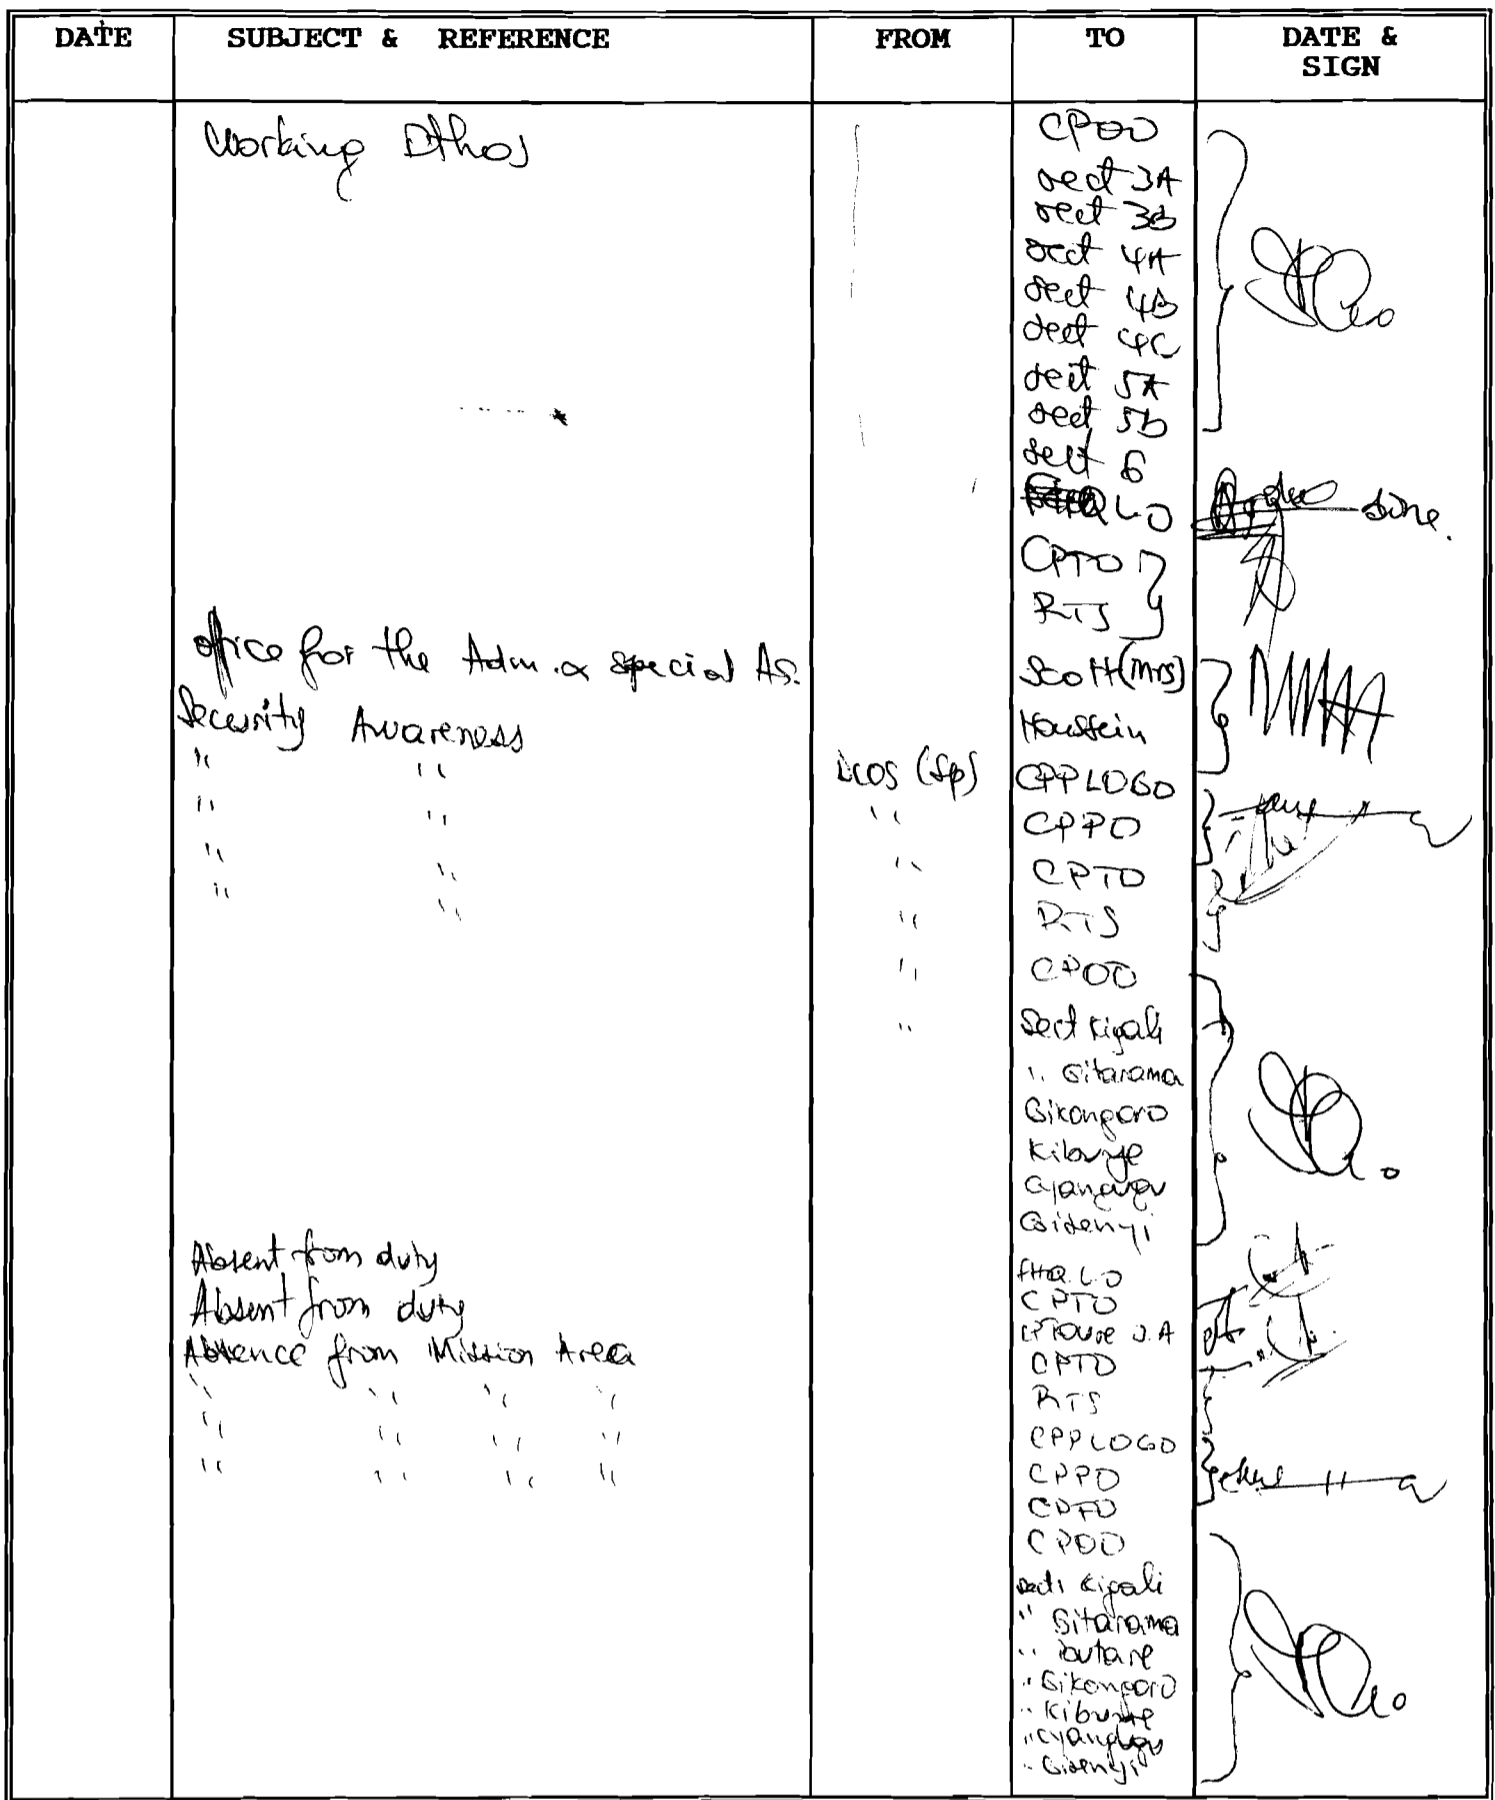 DATE SUBJECT & REFERENCE FROM TO DATE & SIGN
Working Ethos CPOO
sect 3A
sect 3B
sect 4A
sect 4B
sect 4C
sect 5A
sect 5b
sect 6
LO done.
CPTO
RTS
office for the Adm. & special As. Scott (Mrs)
Security Awareness Houssein
" " DCOS (Sp) CPPLOGO
" " " CPPO
" " " CPTO
" " " RTS
" CPOO
" Sect Kigali
" Gitarama
Gikongoro
Kibuye
Cyangugu
Gisenyi
Absent from duty FHQ LO
Absent from duty CPTO
Absence from Mission Area J.A
CPTO
" " " " RTS
" " " " CPPLOGO
" " " " CPPO
CPTO
CPOO
Sect. Kigali
" Gitarama
" Butare
" Gikongoro
" Kibuye
" Cyangugu
" Gisenyi